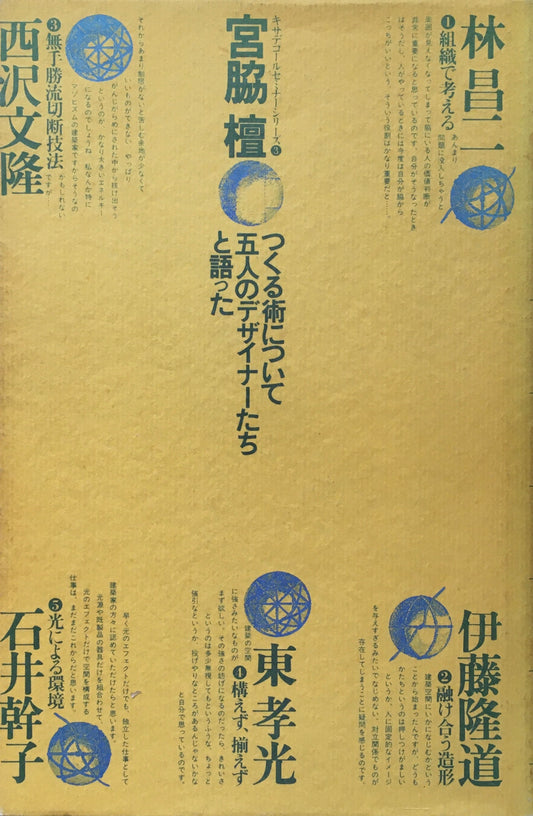 林昌二
❶組織で考える
あんまり
問題に没入しちゃうと
周囲が見えなくなってしまって脇にいる人の価値判断が
非常に重要になると思っているのです。自分がそうなったとき
はそうだし、人がやっているときには今度は自分が脇から
こっちがいいという、そういう役割はかなり重要だと……。
キサデコールセミナーシリーズ❸
宮脇檀
つくる術について
五人のデザイナーたち
と語った
それからあまり制限がないと苦しむ余地が少なくて、
いいものができない。やっぱり
がんじがらめにされた中から抜け出そう
というのが、かなり大きいエネルギー
になるのでしょうね。私なんか特に
マゾヒズムの建築家ですからそうなの
かもしれない
ですが。
❸無手勝流切断技法
西沢文隆
伊藤隆道
❷融け合う造形
建築空間にいかになじむかという
ことから始まったんですが、どうも
かたちというのは押しつけがましい
というか、人に固定的なイメージ
を与えすぎるみたいでなじめない。対立関係でものが
存在してしまうことに疑問を感じるのです。
東孝光
❹構えず、揃えず
建築の空間
に強さみたいなものが
まず欲しい。その強さの妨げになるのだったら、きれいさ
というのは多少無視してもというふうな、ちょっと
強引なというか、投げやりなところがあるんじゃないかな
と自分で思っているのです。
早く光のエフェクトだけでも、独立した仕事として
建築家の方々に認めていただけたらと思います。
光源や既製品の器具だけを組合わせて、
光のエフェクトだけで空間を構成する
仕事は、まだまだこれからだと思います。
❺光による環境
石井幹子